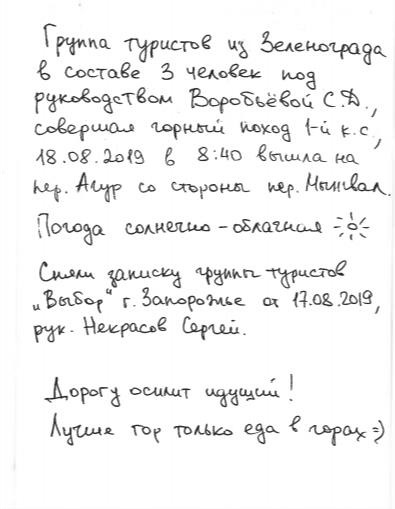 Группа туристов из Зеленограда
в составе 3 человек под
руководством Воробьёвой С.Д.,
совершая горный поход 1-й к.с.,
18.08.2019 в 8:40 вышла на
пер. Агур со стороны пер. Мынвал.
Погода солнечно-облачная
Сняли записку группы туристов
„Выбор“ г. Запорожье от 17.08.2019,
рук. Некрасов Сергей.
Дорогу осилит идущий!
Лучше гор только еда в горах =)